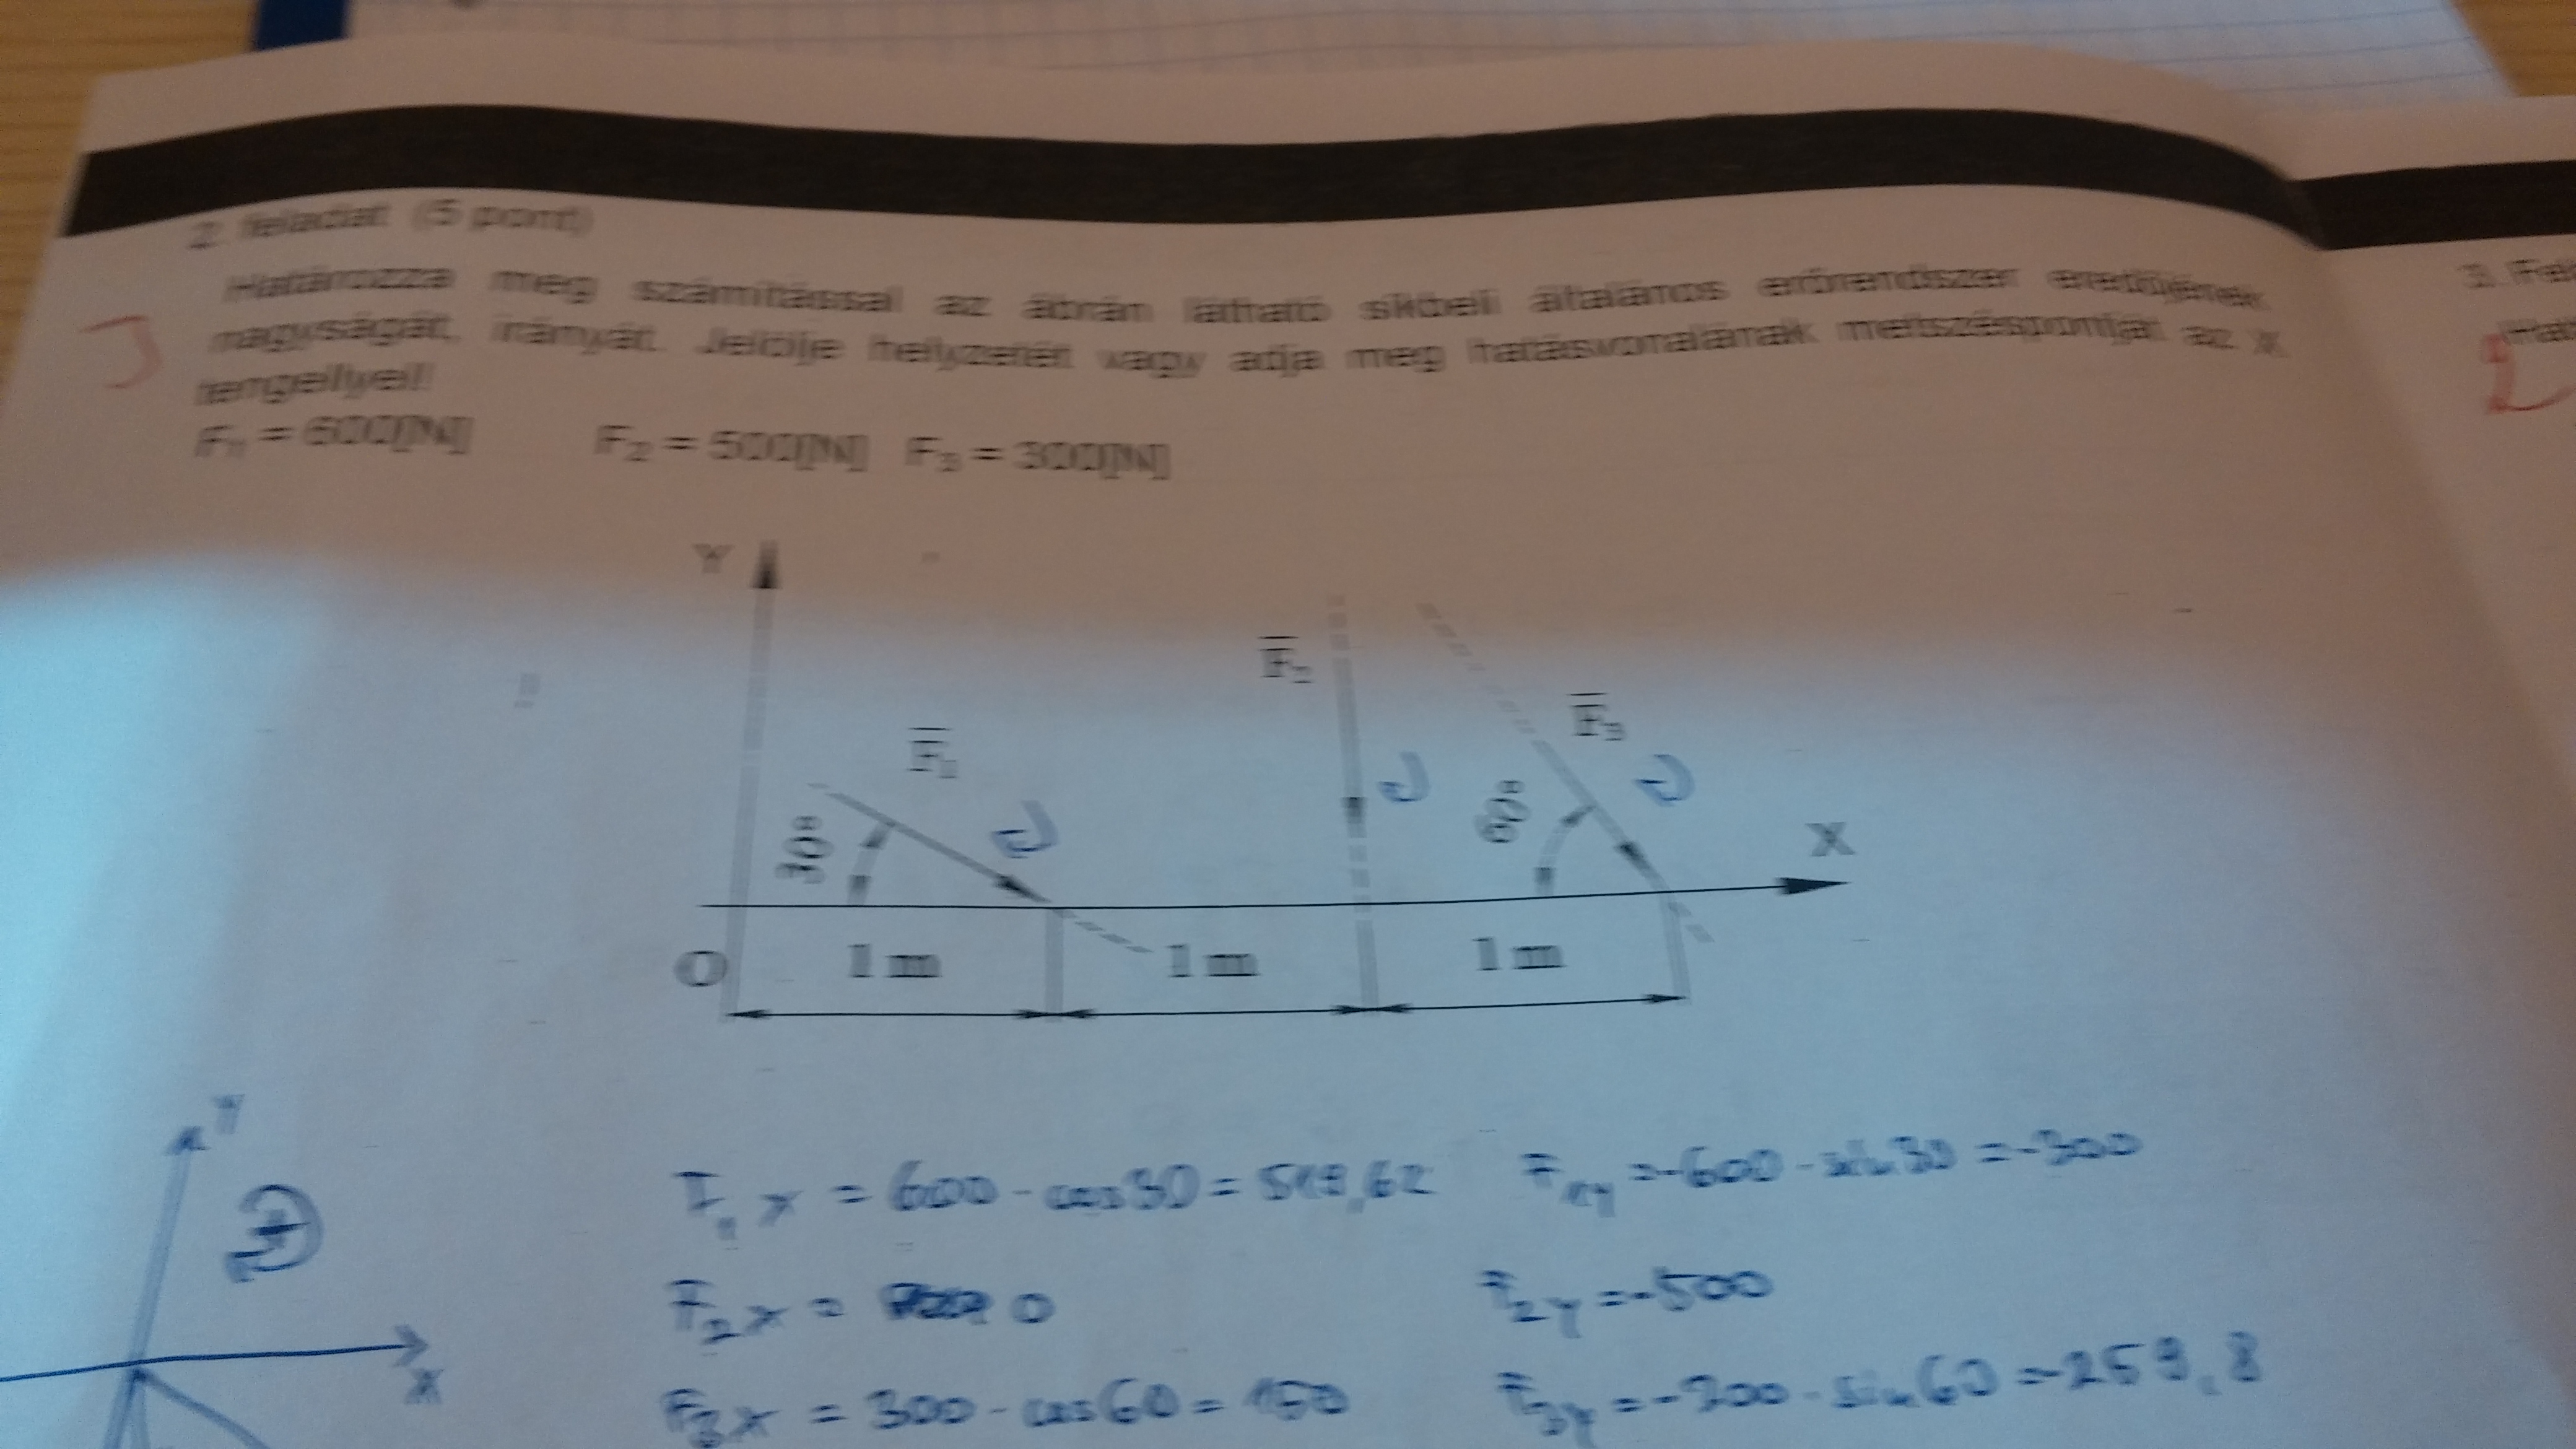 2. feladat (5 pont)
Határozza meg számítással az ábrán látható síkbeli általános erőrendszer eredőjének
nagyságát, irányát. Jelölje helyzetét vagy adja meg hatásvonalának metszéspontját az x
tengellyel!
F₁ = 600[N] F₂ = 500[N] F₃ = 300[N]
Y
F₂
F₃
F₁
30°
60°
X
O
1 m 1 m 1 m
Y
F₁x = 600 · cos30 = 519,62 F₁y = -600 · sin30 = -300
+
F₂x = 0 F₂y = -500
X
F₃x = 300 · cos60 = 150 F₃y = -300 · sin60 = -259,8